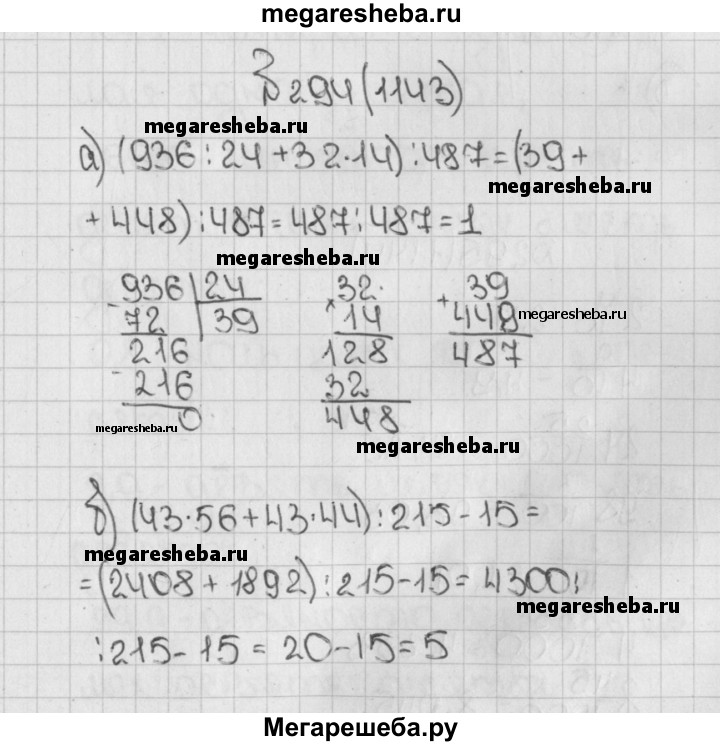 megaresheba.ru
№294(1143)
megaresheba.ru
а) (936:24+32·14):487=(39+
megaresheba.ru
+448):487=487:487=1
megaresheba.ru
936 24 32 39
- 72 39 × 14 + 448 megaresheba.ru
216 128 487
- 216 32
0 448
megaresheba.ru
megaresheba.ru
б) (43·56+43·44):215-15=
megaresheba.ru
=(2408+1892):215-15=4300:
megaresheba.ru
:215-15=20-15=5
Мегарешеба.ру